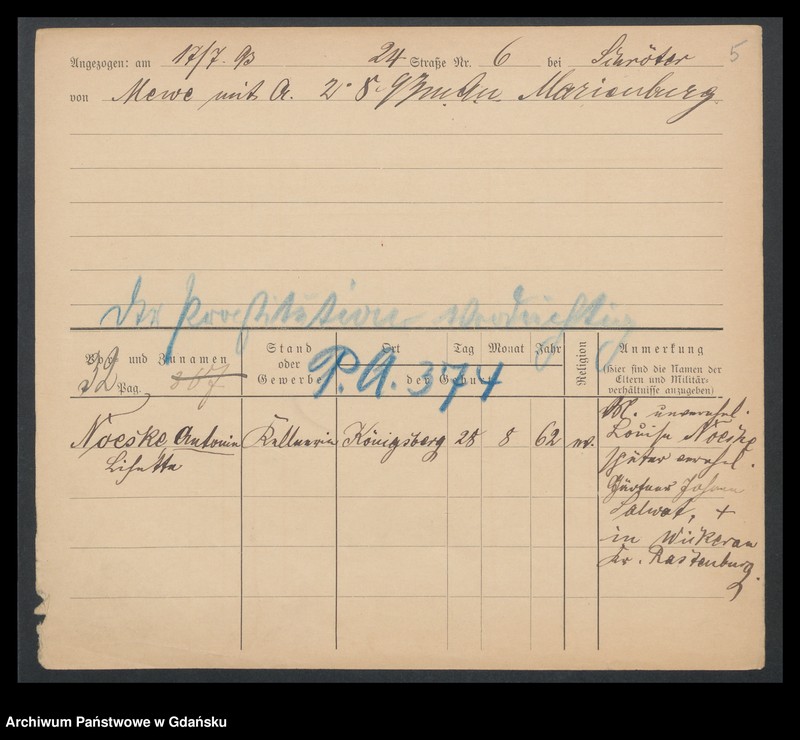 5
Angezogen: am 17/7. 93 24 Straße Nr. 6 bei Schröter
von Mewe mit A. 2. 8. 93 Marienburg
Der Prostitution verdächtig
Vor- und Zunamen
32 Pag.
Stand oder Gewerbe
Ort Tag Monat Jahr
der Geburt
Religion
Anmerkung
(Hier sind die Namen der
Eltern und Militär-
verhältnisse anzugeben)
P. A. 374
Noeske Antonie Kellnerin Königsberg 28 8 62 ev.
Lisette
M. unverehel.
Louise Noeske
später verehel.
Gärtner Johann
+
in Wickerau
Kr. Rastenburg.
Archiwum Państwowe w Gdańsku